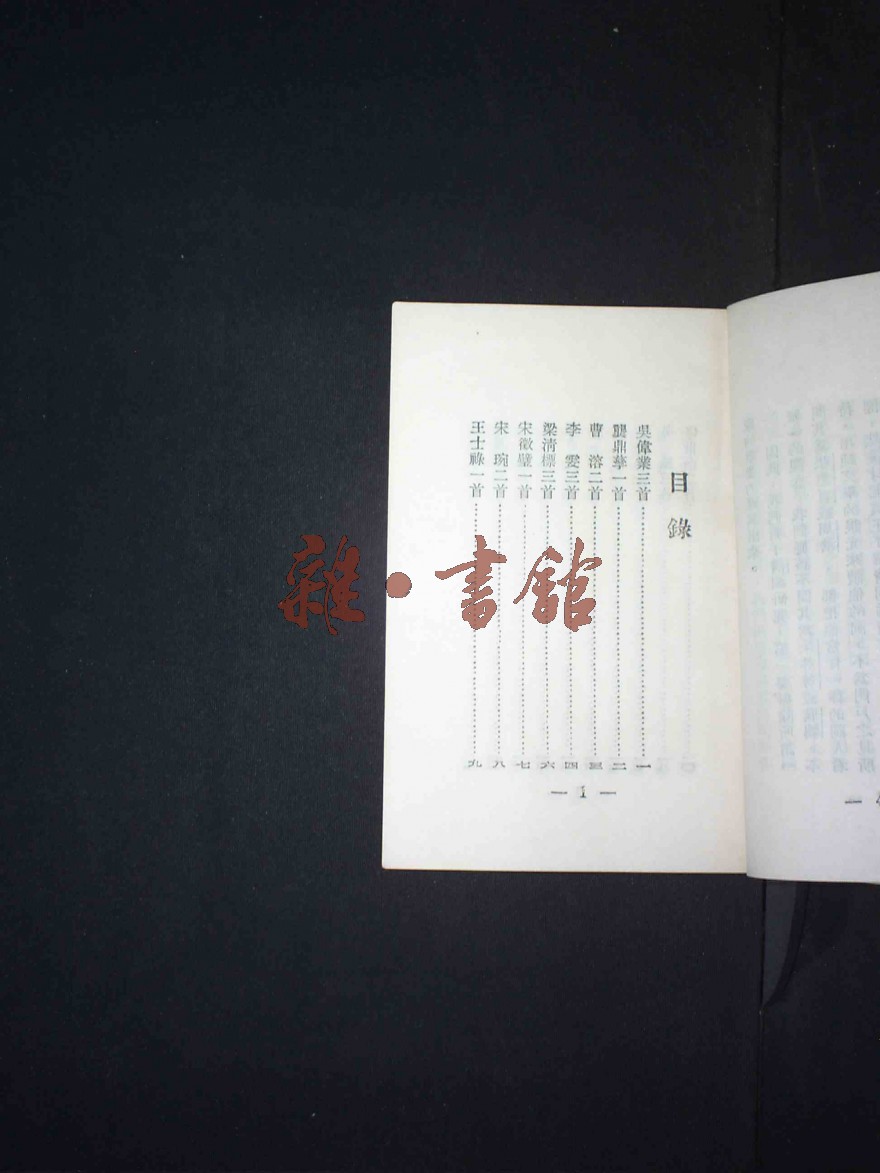 目錄
吳偉業三首…………一
龔鼎孳一首…………二
曹　溶二首…………三
李　雯三首…………四
梁淸標三首…………六
宋徵璧一首…………七
宋　琬二首…………八
王士祿一首…………九
— 1 —
雜·書館